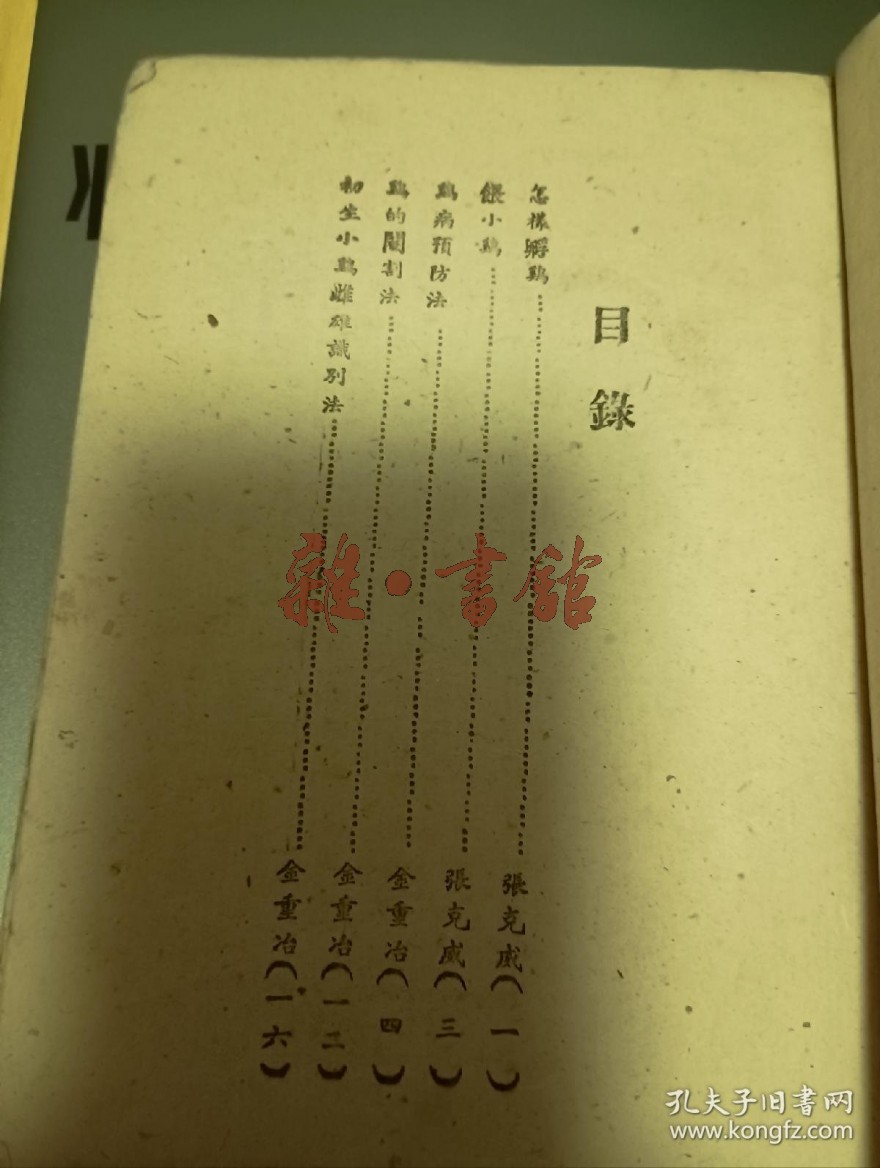 目錄
怎樣孵鷄……张克威(一)
餵小鷄……張克威(三)
鷄病預防法……金重冶(四)
鷄的閹割法……金重冶(一二)
初生小鷄雌雄識別法……金重冶(一六)
雜·書館
孔夫子旧书网
www.kongfz.com